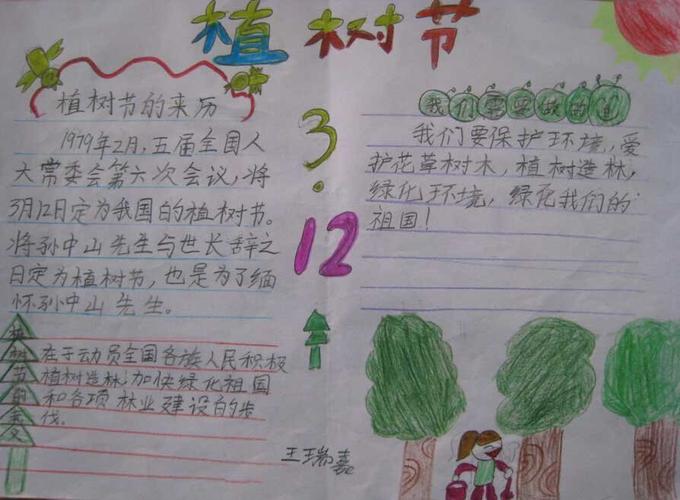 植树节
植树节的来历
1979年2月,五届全国人
大常委会第六次会议,将
3月12日定为我国的植树节。
将孙中山先生与世长辞之
日定为植树节,也是为了缅
怀孙中山先生。
树节的意义
在于动员全国各族人民积极
植树造林,加快绿化祖国
和各项林业建设的步
伐。
3.
12
我们需要做的
我们要保护环境,爱
护花草树木,植树造林,
绿化环境,绿化我们的
祖国!
王瑞嘉